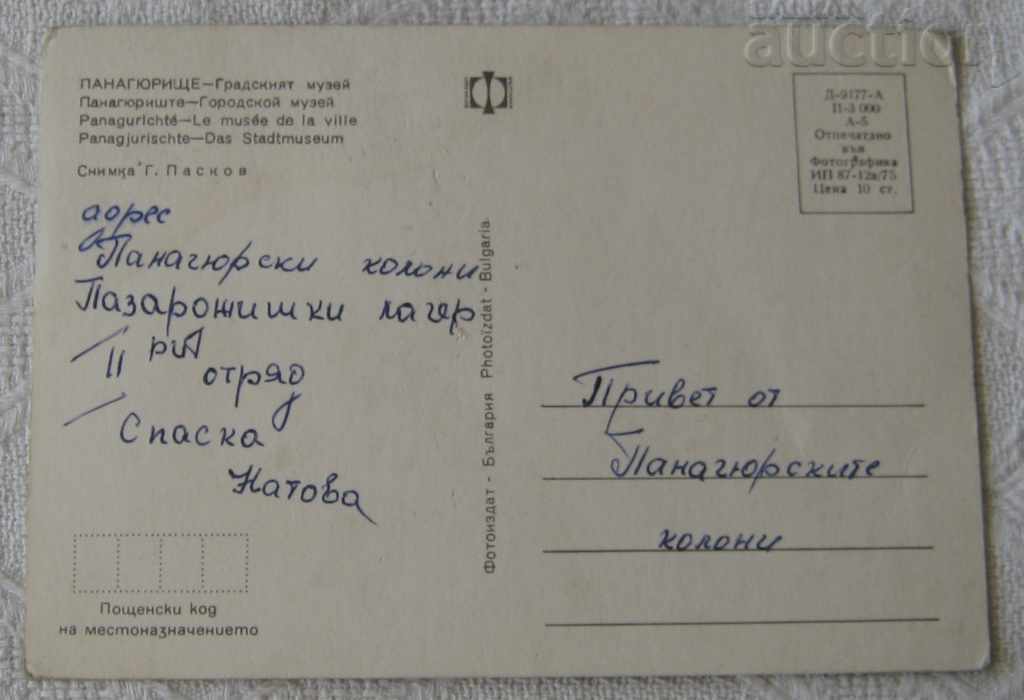 auction
ПАНАГЮРИЩЕ—Градският музей
Панагюриште—Городской музей
Panagurichté—Le musée de la ville
Panagjurischte—Das Stadtmuseum
Снимка Г. Пасков
Д-9177-А
П-3 000
А-5
Отпечатано
във
Фотографика
ИП 87-12а/75
Цена 10 ст.
адрес
Панагюрски колони
Пазарджишки лагер
II ри отряд
Спаска
Натова
Фотоиздат - България Photoizdat - Bulgaria
Привет от
Панагюрските
колони
Пощенски код
на местоназначението